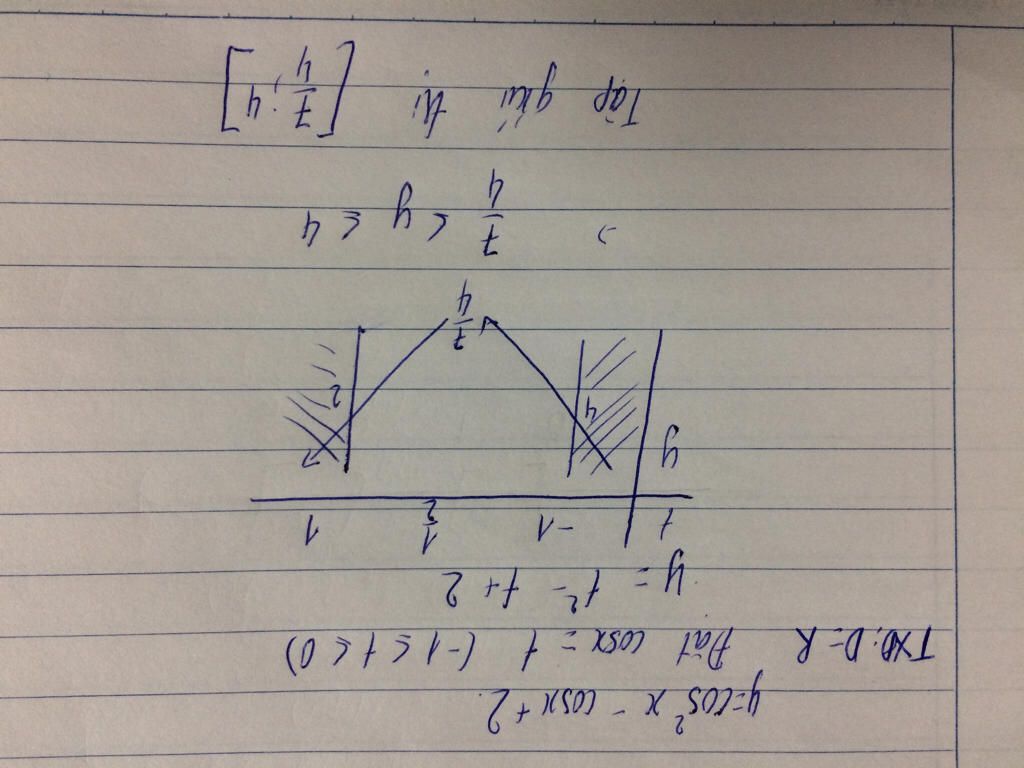 y=cos²x - cosx + 2.
TXĐ: D=R Đặt cosx = t (-1 ≤ t ≤ 0)
y = t² - t + 2
t -1 1/2 1
y 4 7/4 2
⇒ 7/4 ≤ y ≤ 4
Tập giá trị [7/4; 4]